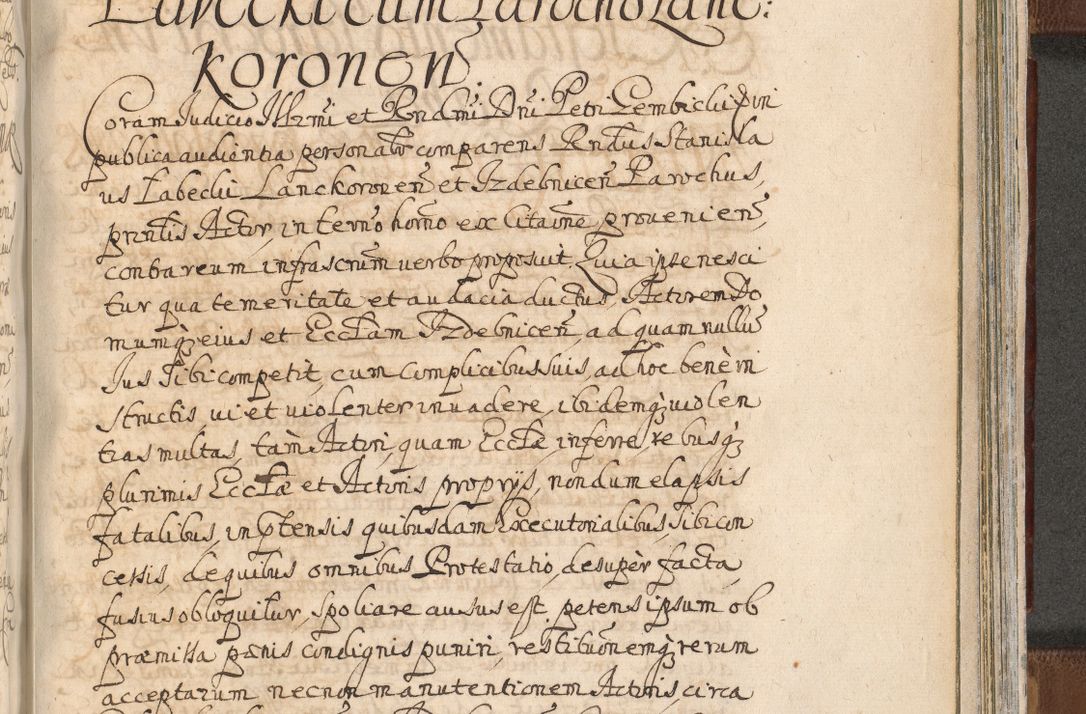 Lareckii cum Parocho Lanc:
koronen:
Coram Judicio Illrmi et Rndmi Dni Petri Gembiclii Divi
publica audientia personalr comparens Rndus Stanisla
us Labeclii Lanckoronen et Izdebnicen Parochus,
prntis Actor, in termo horno ex Citaone proveniens
contra reum infrascrum verbo proposuit. Quia ipse nesci
tur qua temeritate et audacia ductus, Actorem Do
mumq eius et Ecctam Izdebnicen, ad quam nullu
Jus Sibi competit, cum Complicibus suis, ad hoc benè in
structis, vi et violenter invadere, ibidemq violen
tias multas, tam Actori, quam Ecctæ inferre, rebusq
plurimis Ecctæ et Actoris propriis, nondum elapsis
fatalibus, in ptensis quibusdam Executorialibus Sibi con
cessis, de quibus omnibus Protestatio, desupèr facta,
fusius obloquitur, Spoliare ausus est. petens ipsum ob
præmissa pænis condignis puniri, restitutionemq rerum
acceptarum necnon manutentionem Actoris circa